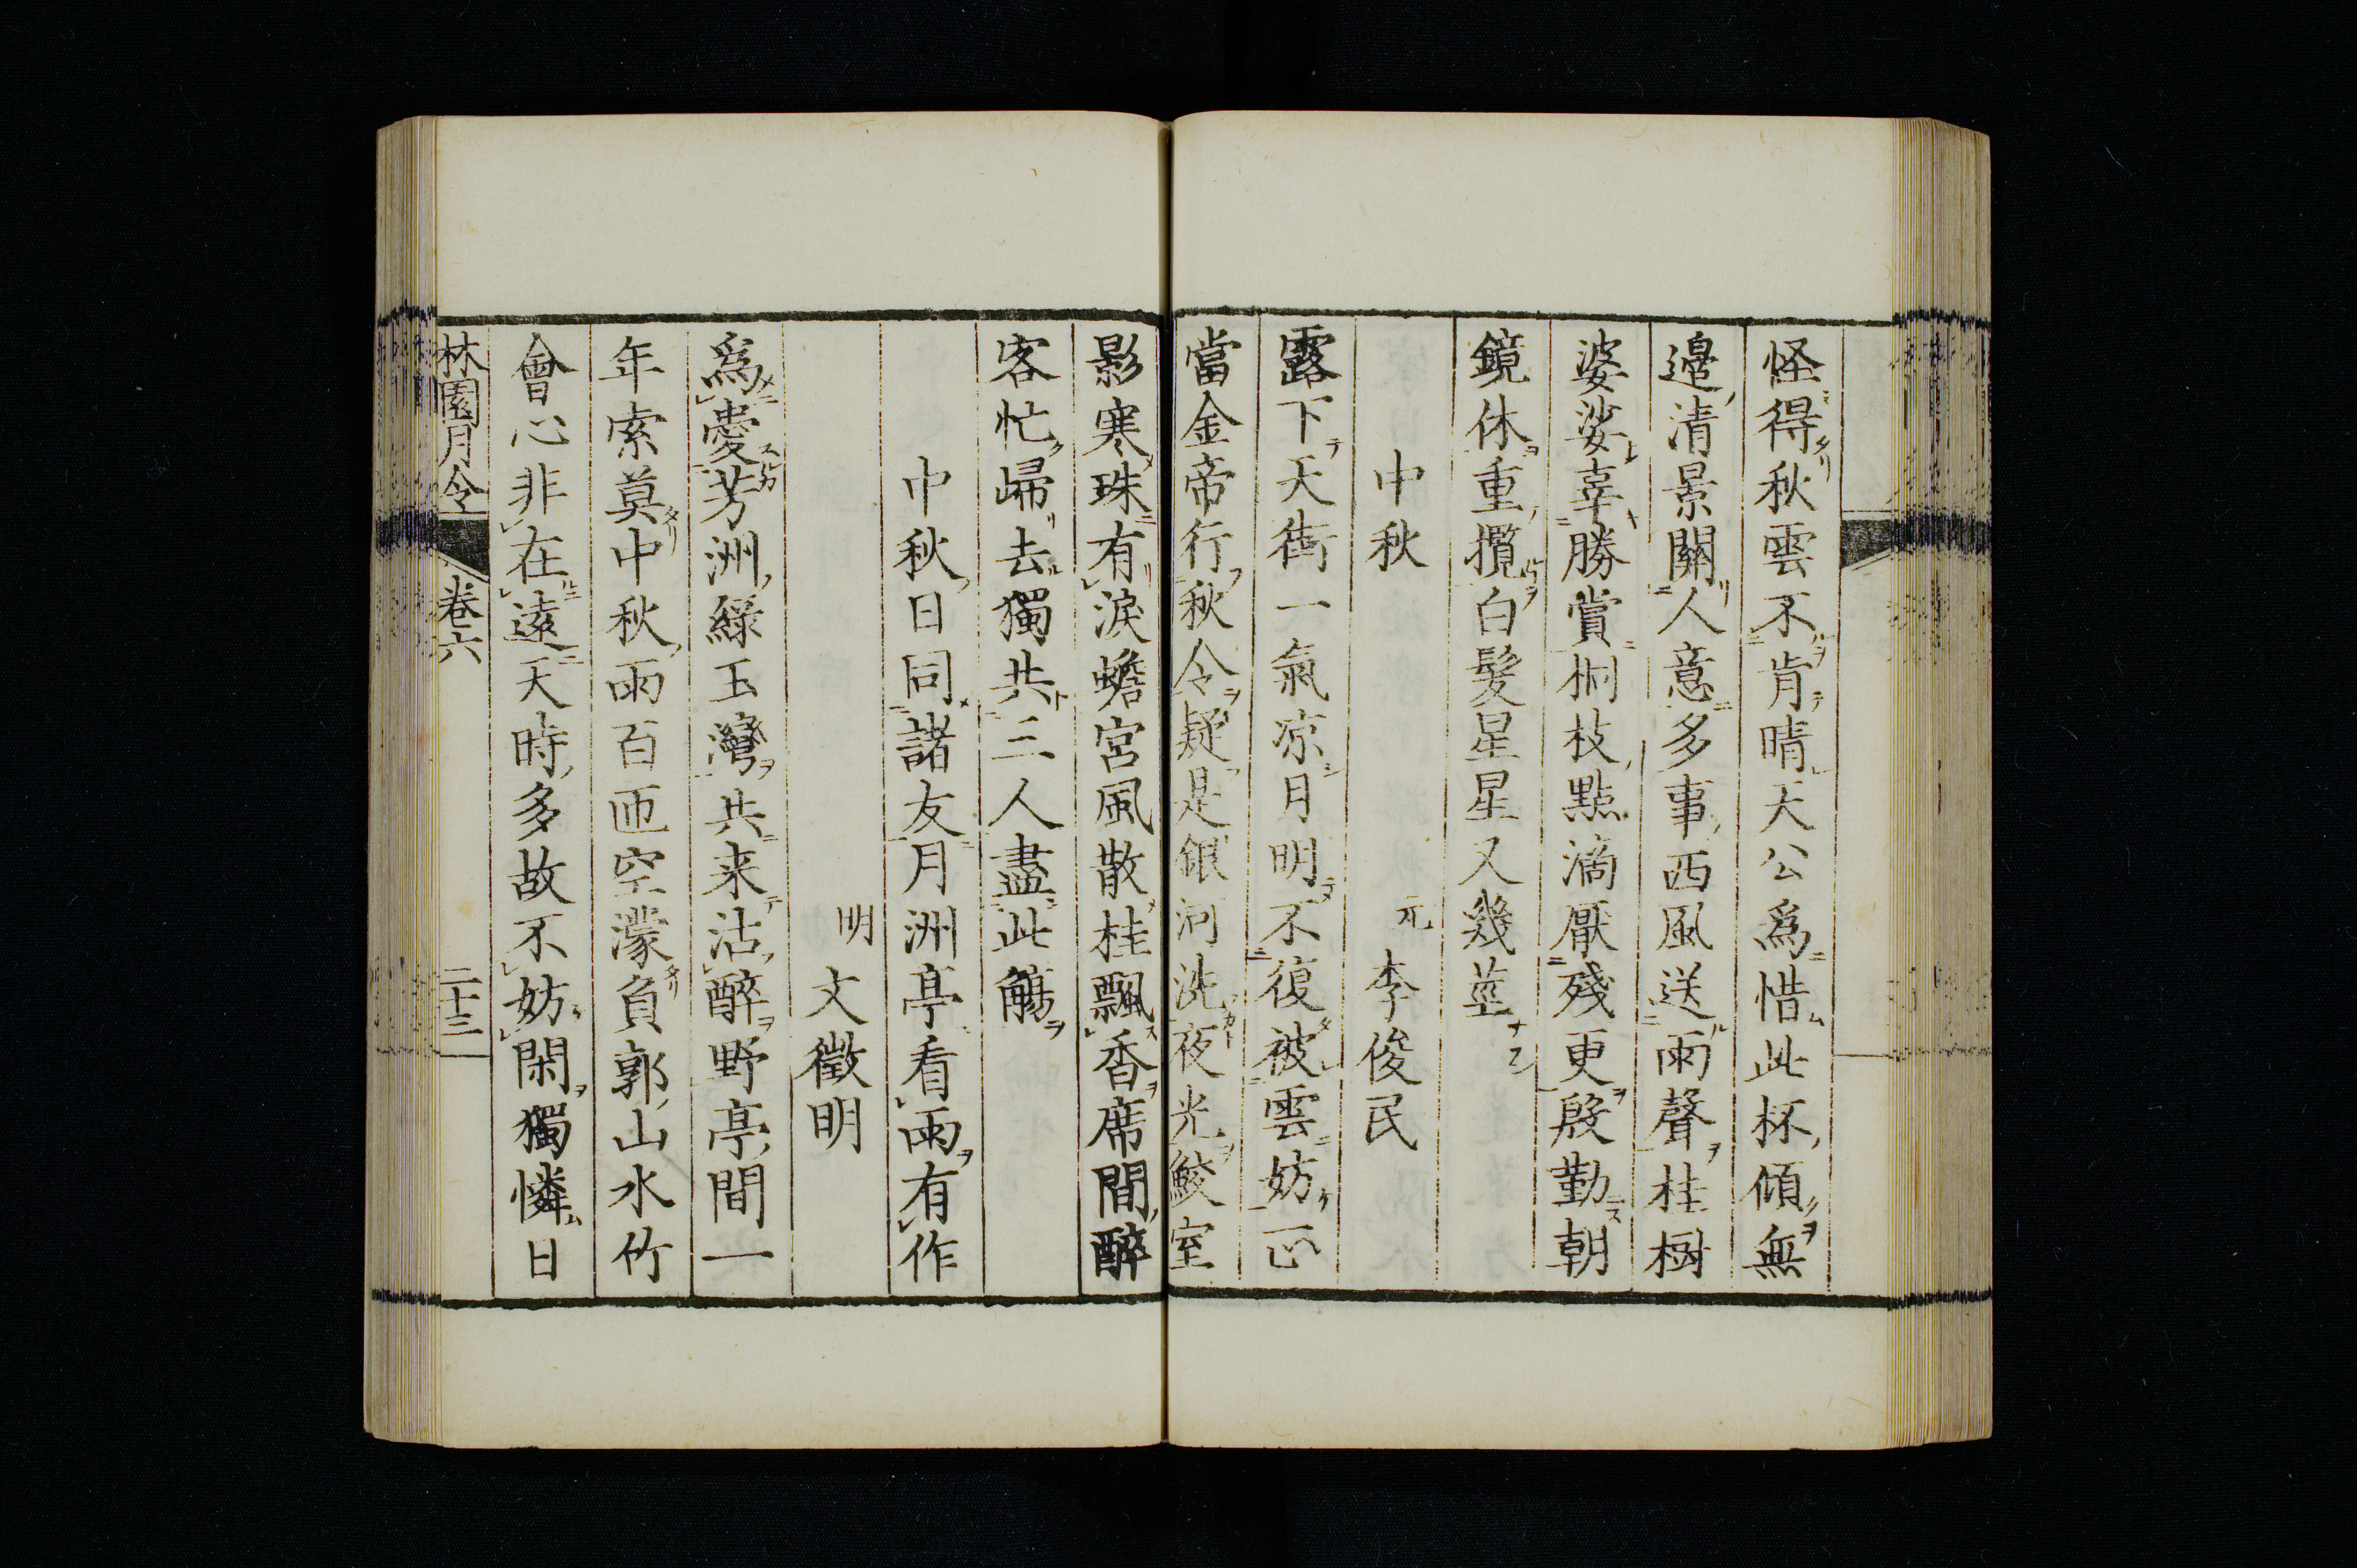 怪得秋雲不肯晴天公爲惜此杯傾無
邉清景關人意多事西風送雨聲桂樹
婆娑辜勝賞桐枝點滴厭殘更殷勤朝
鏡休重攬白髮星星又幾莖
中秋
元 李俊民
露下天街一氣凉月明不復被雲妨正
當金帝行秋令疑是銀河洗夜光鮫室
影寒珠有淚蟾宮風散桂飄香席間醉
客忙歸去獨共三人盡此觴
中秋日同諸友月洲亭看雨有作
明 文徵明
爲愛芳洲綠玉灣共来沽醉野亭間一
年索莫中秋雨百匝空濛負郭山水竹
會心非在遠天時多故不妨閑獨憐日
林園月令 卷六 二十三